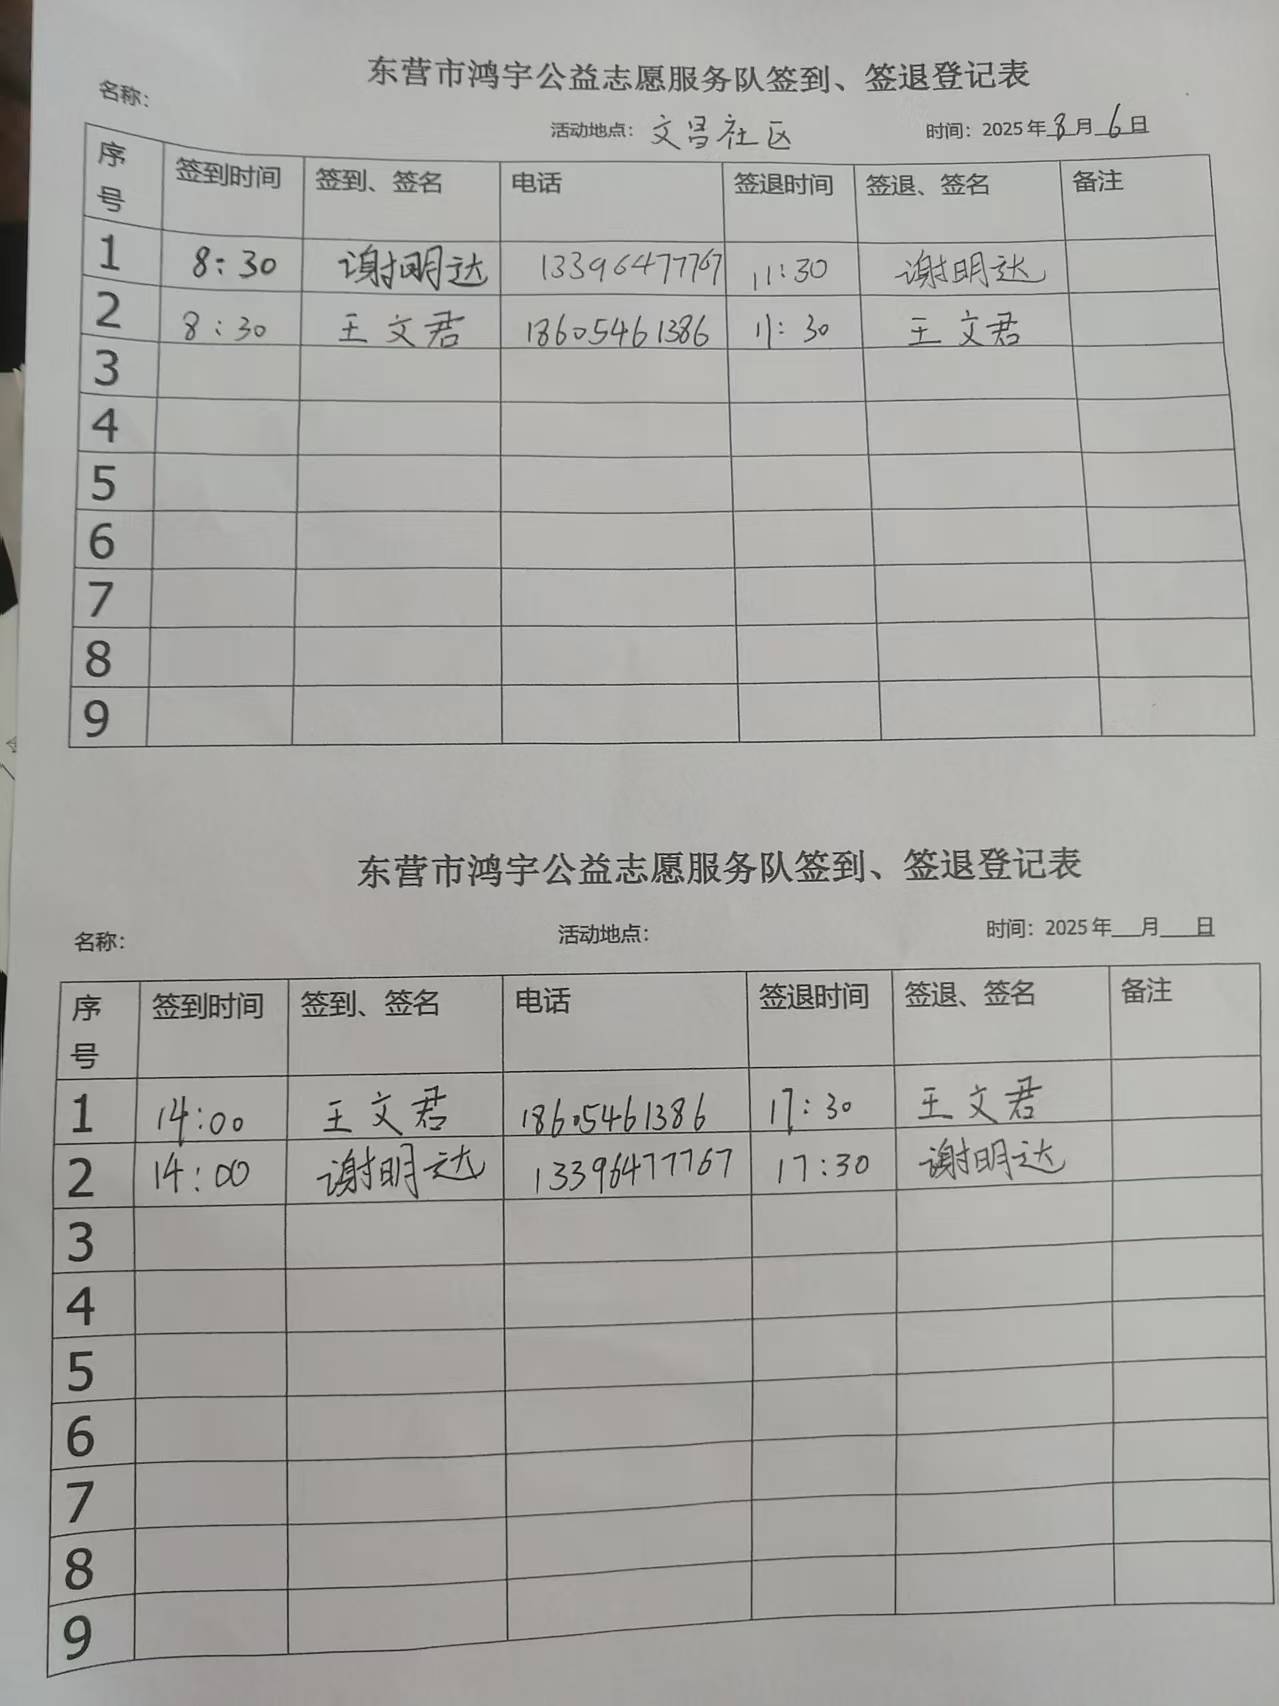 东营市鸿宇公益志愿服务队签到、签退登记表
名称：
活动地点：文昌社区 时间：2025年8月6日
序号 签到时间 签到、签名 电话 签退时间 签退、签名 备注
1 8:30 谢明达 13396477767 11:30 谢明达
2 8:30 王文君 18605461386 11:30 王文君
3
4
5
6
7
8
9
东营市鸿宇公益志愿服务队签到、签退登记表
名称： 活动地点： 时间：2025年___月___日
序号 签到时间 签到、签名 电话 签退时间 签退、签名 备注
1 14:00 王文君 18605461386 17:30 王文君
2 14:00 谢明达 13396477767 17:30 谢明达
3
4
5
6
7
8
9